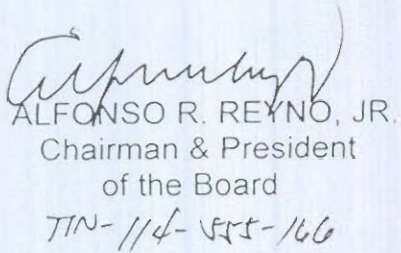 ALFONSO R. REYNO, JR.
Chairman & President
of the Board
TIN-114-555-166